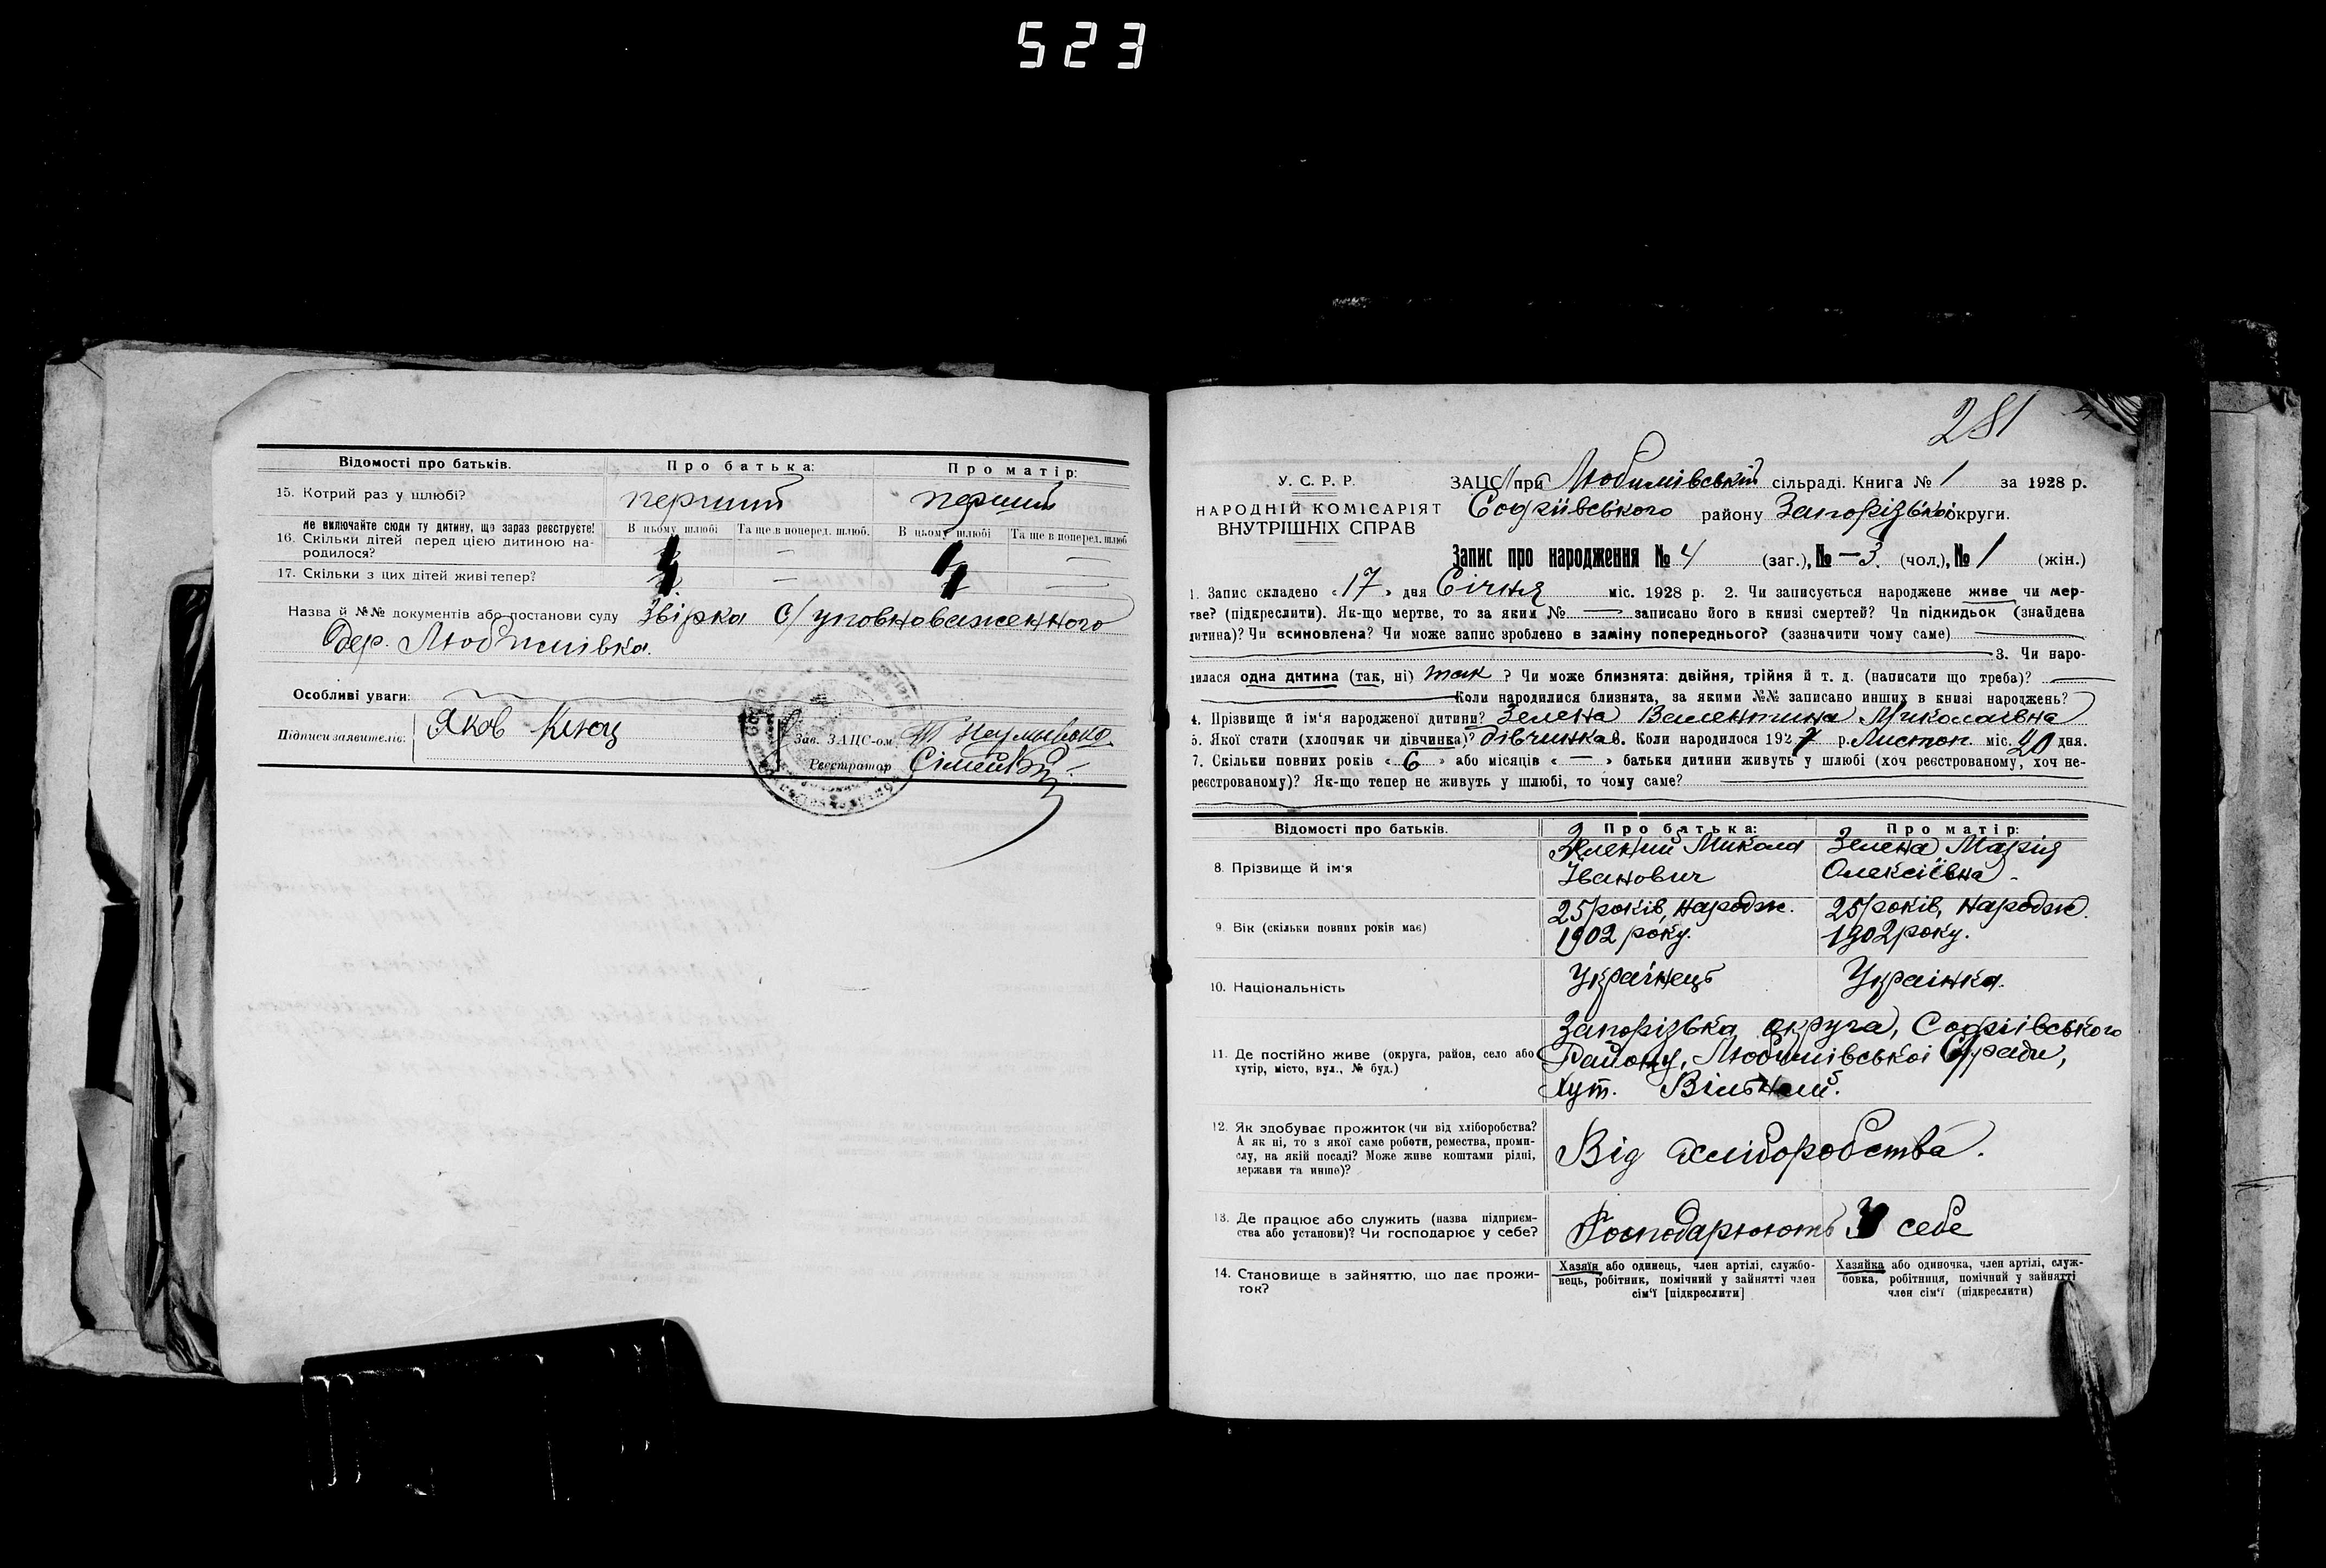 523
Відомості про батьків. Про батька: Про матір:
15. Котрий раз у шлюбі? перший перший
не включайте сюди ту дитину, що зараз реєструєте! В цьому шлюбі Та ще в поперед. шлюб. В цьому шлюбі Та ще в поперед. шлюб
16. Скільки дітей перед цією дитиною на- —
родилося?
17. Скільки з цих дітей живі тепер? — —
Назва й №№ документів або постанови суду Звірка С/уповноваженного
дер. Любимівка.
Особливі уваги:
Підписи заявителів: Яков Клюц
Зав. ЗАЦС-ом
Реєстратор
281
У. С. Р. Р.
НАРОДНІЙ КОМІСАРІЯТ
ВНУТРІШНІХ СПРАВ
ЗАЦС при Любимівській сільраді. Книга № 1 за 1928 р.
Софіївського району Запорізької округи.
Запис про народження № 4 (заг.), № — 3. (чол.), № 1 (жін.)
1. Запис складено «17» дня Січня міс. 1928 р. 2. Чи записується народжене живе чи мер-
тве? (підкреслити). Як-що мертве, то за яким № — записано його в книзі смертей? Чи підкидьок (знайдена
дитина)? Чи всиновлена? Чи може запис зроблено в заміну попереднього? (зазначити чому саме)
3. Чи наро-
дилася одна дитина (так, ні) так ? Чи може близнята: двійня, трійня й т. д. (написати що треба)? —
Коли народилися близнята, за якими №№ записано инших в книзі народжень?
4. Прізвище й ім'я народженої дитини? Зелена Валентина Миколаівна
5. Якої стати (хлопчак чи дівчинка)? дівчинка 6. Коли народилося 1927 р. Листоп. міс. 20 дня.
7. Скільки повних років «6» або місяців «—» батьки дитини живуть у шлюбі (хоч реєстрованому, хоч не-
реєстрованому)? Як-що тепер не живуть у шлюбі, то чому саме?
Відомості про батьків. Про батька: Про матір:
8. Прізвище й ім'я Зелений Микола Зелена Марія
Іванович Олексіївна
9. Вік (скільки повних років має) 25 років, народж. 25 років, народж.
1902 року. 1902 року.
10. Національність Українець Українка.
Запорізька округа, Софіївського
11. Де постійно живе (округа, район, село або Району, Любимівської С/ради,
хутір, місто, вул., № буд.) Хут. Вільний.
12. Як здобуває прожиток (чи від хліборобства?
А як ні, то з якої саме роботи, ремества, проми-
слу, на якій посаді? Може живе коштами рідні,
держави та инше)?
Від хліборобства.
13. Де працює або служить (назва підприєм-
ства або установи)? Чи господарює у себе?
Господарюють У себе
14. Становище в зайняттю, що дає прожи-
ток?
Хазяїн або одинець, член артілі, службо-
вець, робітник, помічний у зайнятті член
сім'ї [підкреслити]
Хазяйка або одиночка, член артілі, служ-
бовка, робітниця, помічний у зайнятті
член сім'ї (підкреслити)